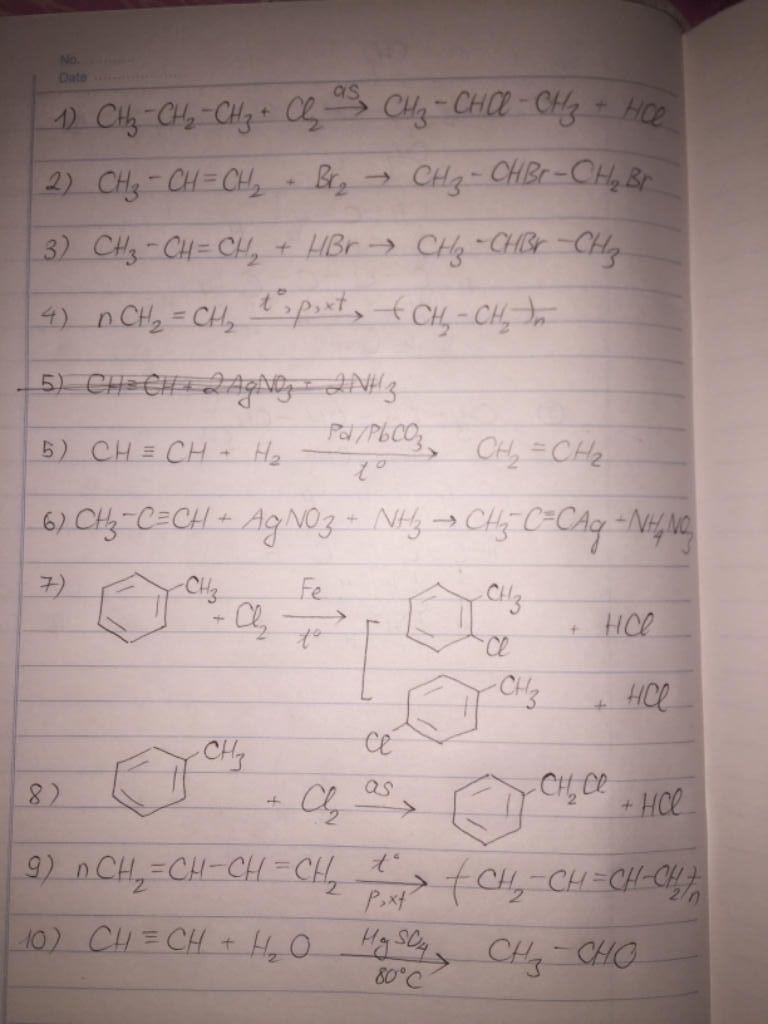 No. ..........
Date ..................
1) CH₃-CH₂-CH₃ + Cl₂ as→ CH₃-CHCl-CH₃ + HCl
2) CH₃-CH=CH₂ + Br₂ → CH₃-CHBr-CH₂Br
3) CH₃-CH=CH₂ + HBr → CH₃-CHBr-CH₃
4) nCH₂=CH₂ t°,p,xt→ -(CH₂-CH₂)-n
5) CH≡CH + 2AgNO₃ + 2NH₃
5) CH≡CH + H₂ Pd/PbCO₃ → t° CH₂=CH₂
6) CH₃-C≡CH + AgNO₃ + NH₃ → CH₃-C≡CAg + NH₄NO₃
7) CH₃ + Cl₂ Fe → t° CH₃ Cl + HCl
CH₃ Cl + HCl
8) CH₃ + Cl₂ as→ CH₂Cl + HCl
9) nCH₂=CH-CH=CH₂ t° → p,xt (CH₂-CH=CH-CH₂)n
10) CH≡CH + H₂O HgSO₄ → 80°C CH₃-CHO